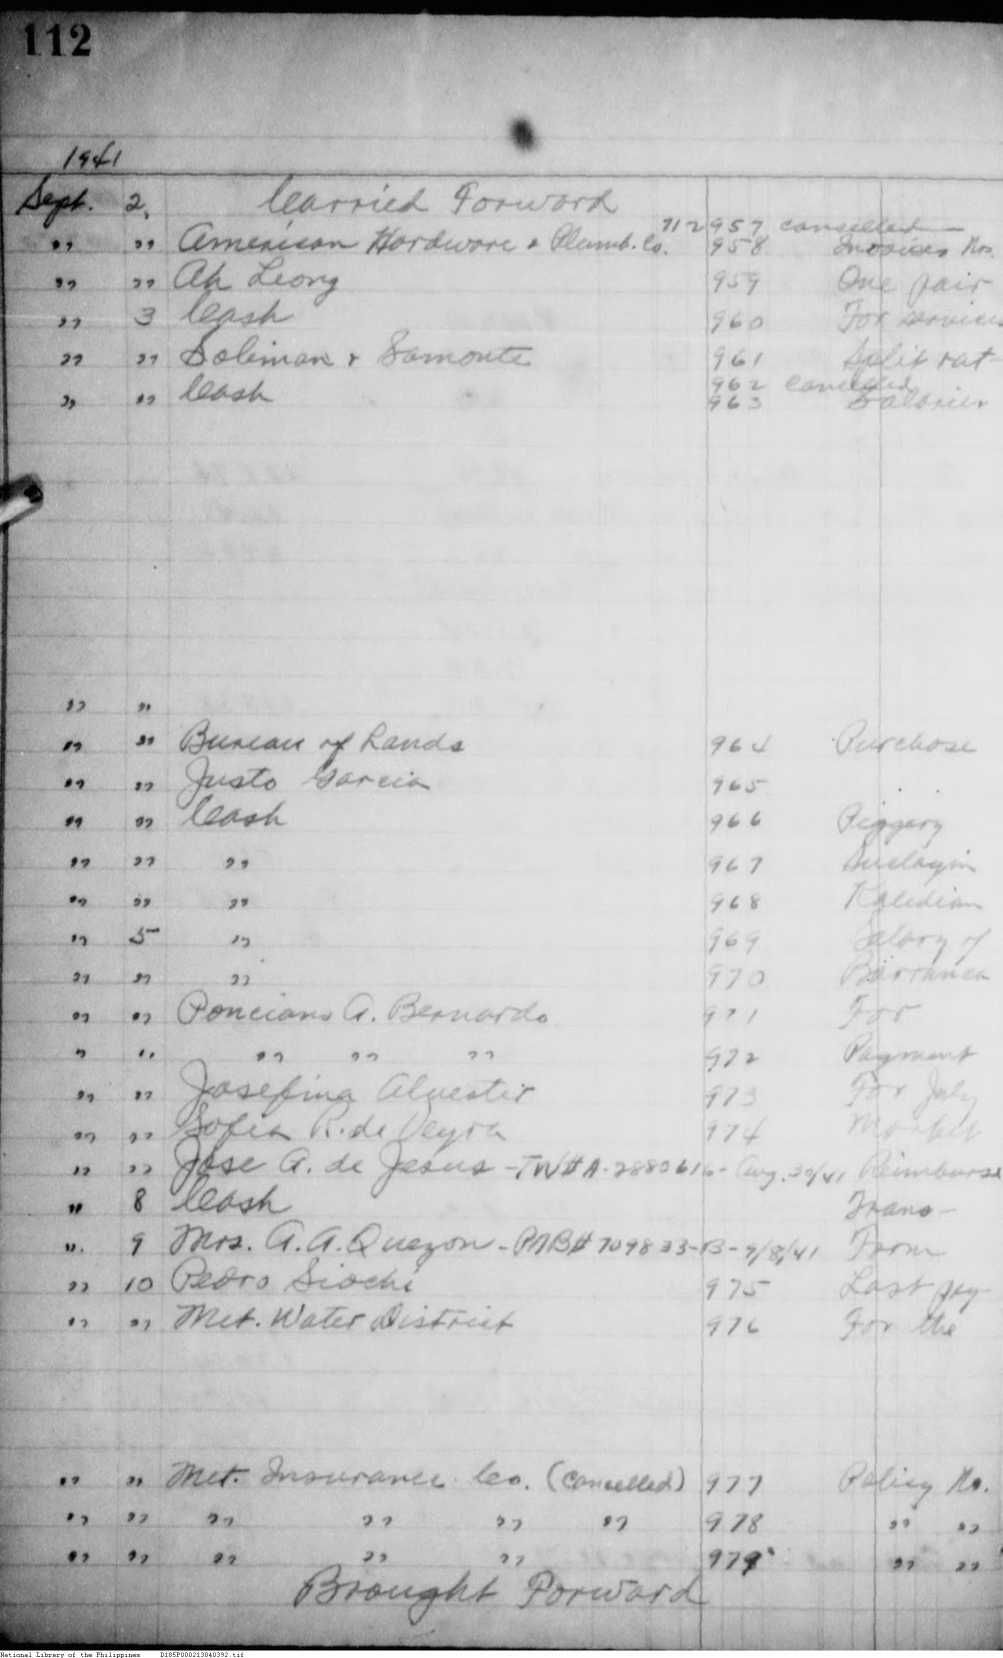 112
1941
Sept. 2, Carried Forward
712957 cancelled
" " American Hardware & Plumb. Co. 958 Invoices Nos.
" " Ah Leong 959 One pair
" 3 Cash 960 For services
" " Soliman & Samonte 961 Split rat-
962 cancelled
" " Cash 963 Salaries
" "
" " Bureau of Lands 964 Purchase
" " Justo Garcia 965
" " Cash 966 Piggery
" " " 967
" " " 968
" 5 " 969 Salary of
" " " 970 Barranca
" " Ponciano A. Bernardo 971 For
" " " " " 972 Payment
" " Josefina 973 For July
" " Sofia R. de Veyra 974 Market
" " Jose A. de Jesus - TW# A-2880616 - Aug. 30/41 Reimburse
" 8 Cash Trans-
" 9 Mrs. A. A. Quezon - PNB# 709833-B - 9/8/41 From
" 10 Pedro Siochi 975 Last pay
" " Met. Water District 976 For the
" " Met. Insurance Co. (Cancelled) 977 Policy No.
" " " " " " 978 " "
" " " " " 979 " "
Brought Forward
National Library of the Philippines D185P000213040392.tif